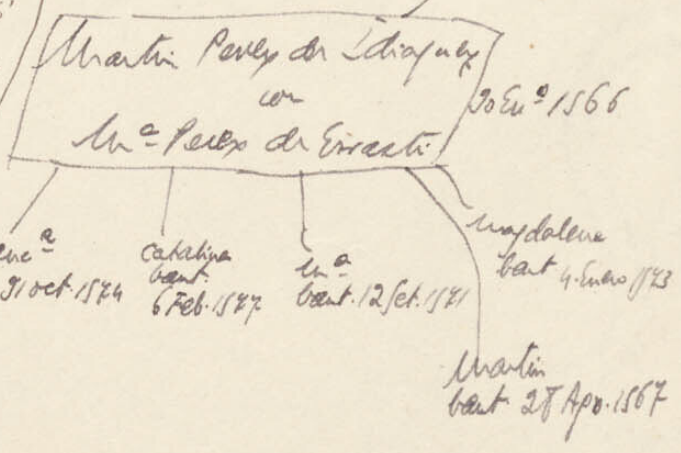 Martin Perez de Idiaquez
con
Mª Perez de Eirasti
20 Enº 1566
catalina
baut.
6 Feb. 1577
Mª
baut. 12 Set. 1571
Magdalena
baut 4 Enero 1573
31 oct. 1574
Martin
baut. 28 Ago. 1567